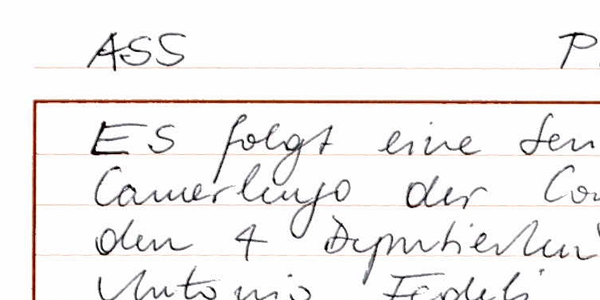 ASS P
ES folgt eine Sen
Camerlengo der Co
den 4 Deputierten
Antonio Fedeli